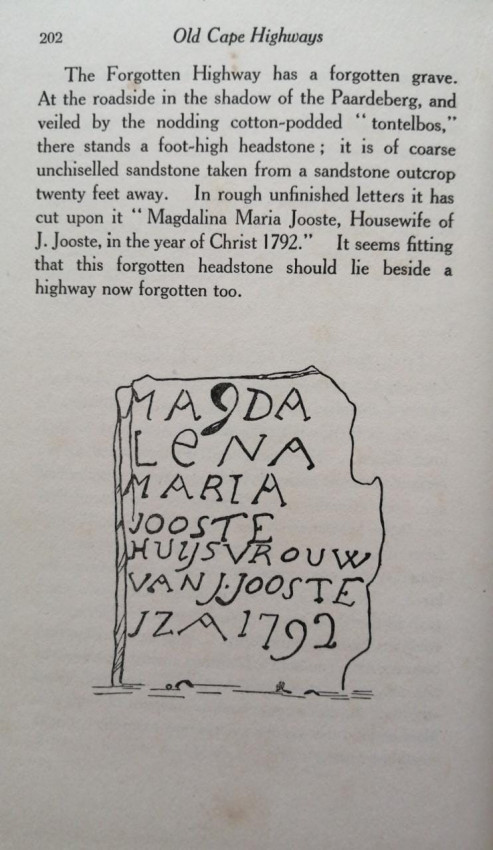 202
Old Cape Highways
The Forgotten Highway has a forgotten grave.
At the roadside in the shadow of the Paardeberg, and
veiled by the nodding cotton-podded “ tontelbos,”
there stands a foot-high headstone ; it is of coarse
unchiselled sandstone taken from a sandstone outcrop
twenty feet away. In rough unfinished letters it has
cut upon it “ Magdalina Maria Jooste, Housewife of
J. Jooste, in the year of Christ 1792.” It seems fitting
that this forgotten headstone should lie beside a
highway now forgotten too.
MAgDA
LeNA
MARIA
JOOSTE
HUIJSVROUW
VAN J. JOOSTE
JZA 1792